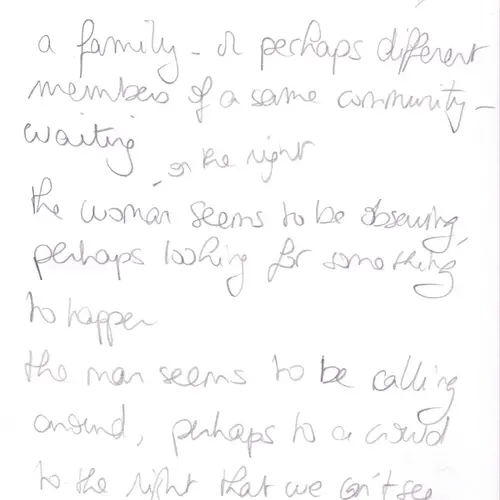 a family - or perhaps different
members of a same community -
waiting
- on the right
the woman seems to be observing,
perhaps looking for something
to happen
the man seems to be calling
around, perhaps to a crowd
to the right that we can't see